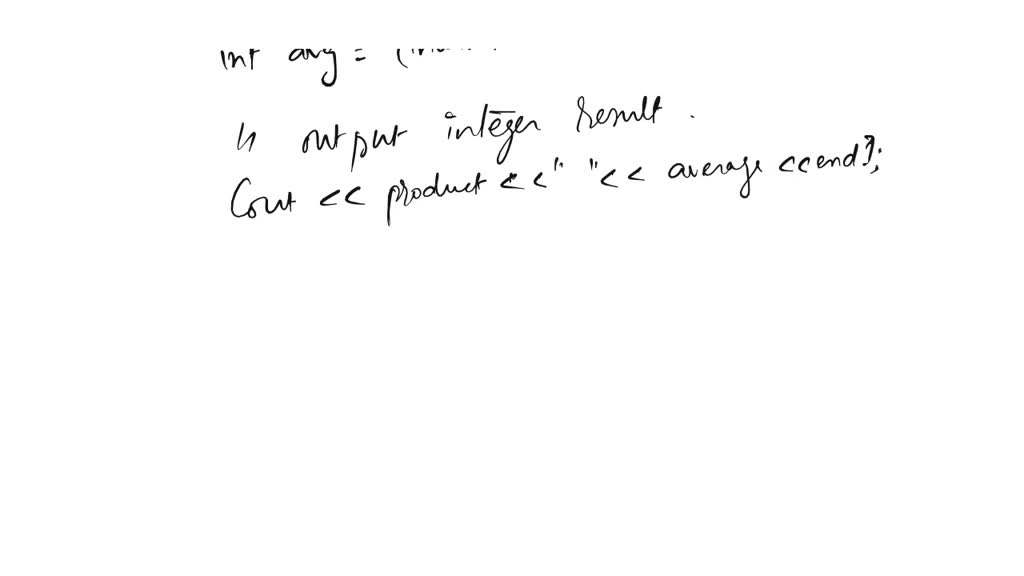 int avg = (
// output integer result.
Cout << product << " " << average << endl;